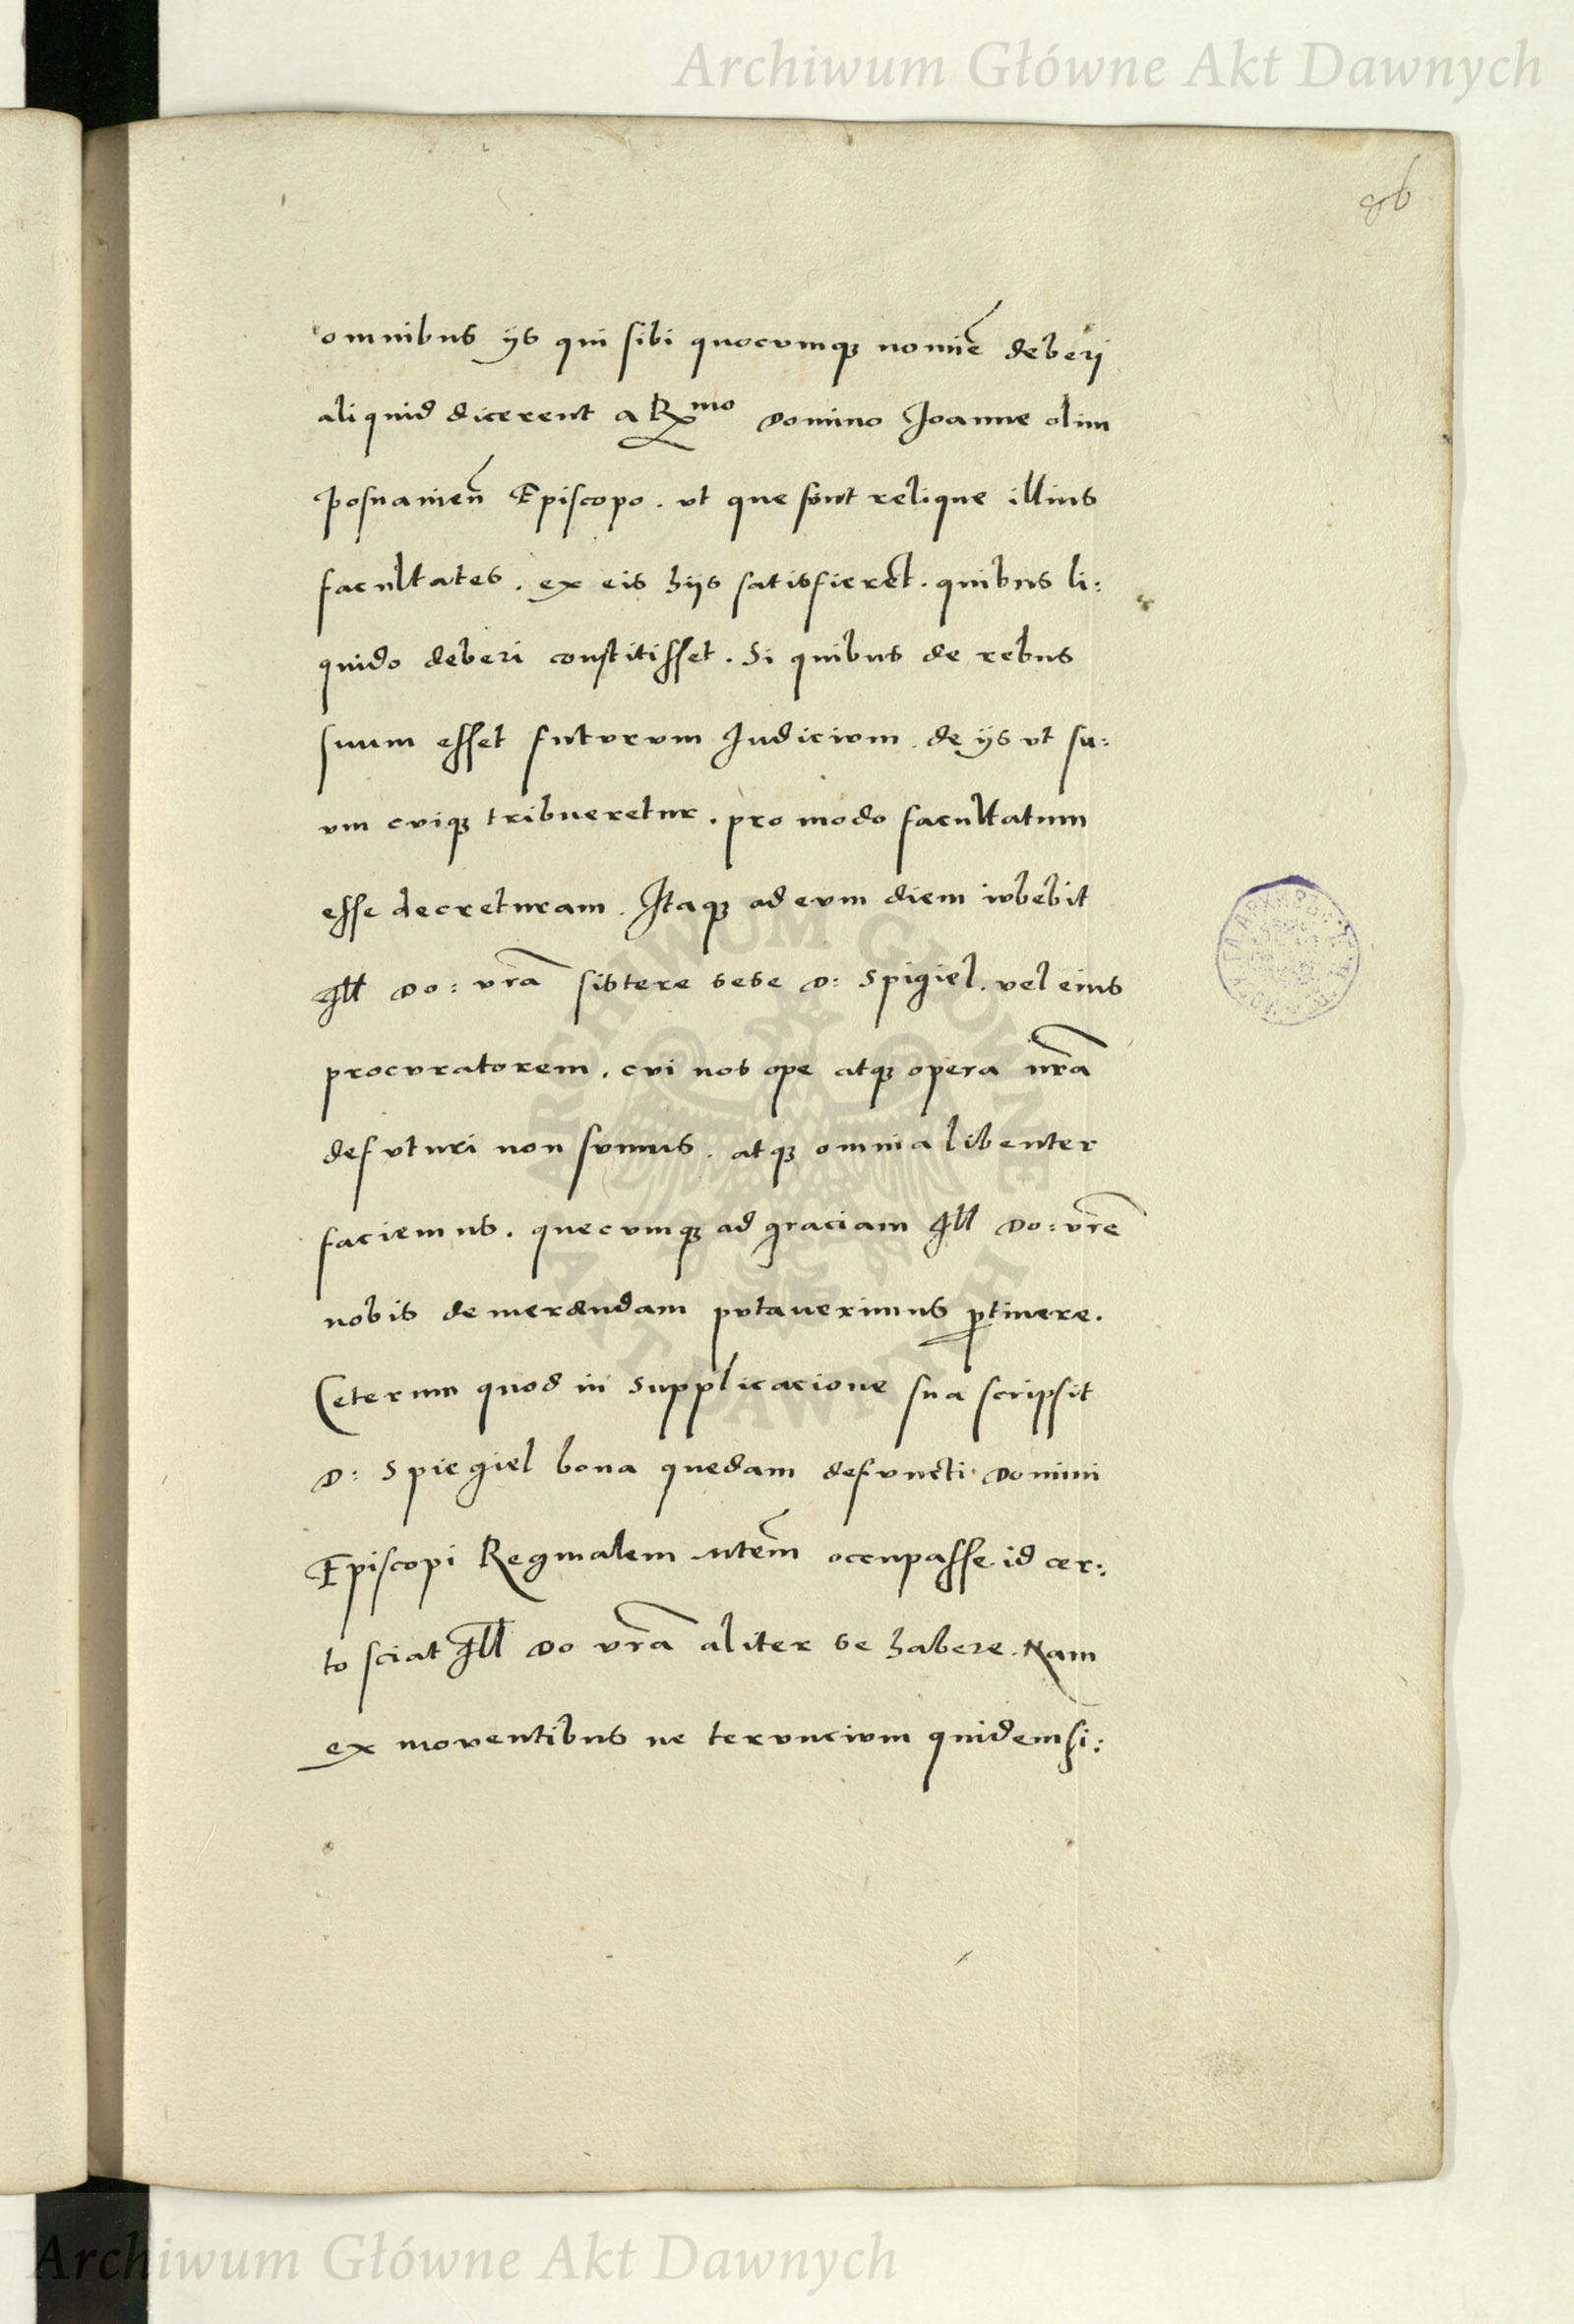 Archiwum Główne Akt Dawnych
86
omnibus ijs qui sibi quocumqꝫ nomiē deberj
aliquid dicerent a Rmo Domino Joanne olim
posnanien̄ Episcopo. ut que sunt relique illius
facultates. ex eis hijs satisfieret. quibus li:
quido deberi constitisset. Si quibus de rebus
suum esset futurum Judicium. de ijs ut su:
um cuiqꝫ tribueretur. pro modo facultatum
esse decreturam. Itaqꝫ ad eum diem iubebit
Ill Do: vrā sistere sese D: Spigiel. vel eius
procuratorem. cui nos ope atqꝫ opera nrā
defuturi non sumus. atqꝫ omnia libenter
faciemus. quecumqꝫ ad graciam Ill Do: vrē
nobis demerendam putauerimus ꝑtinere.
Ceterum quod in supplicacione sua scripsit
D: Spiegiel bona quedam defuncti Domini
Episcopi Reginalem Mtēm occupasse. id cer:
to sciat Ill Do vrā aliter se habere. Nam
ex mouentibus ne teruncium quidem si:
ARCHIWUM GŁÓWNE
AKT DAWNYCH
Archiwum Główne Akt Dawnych